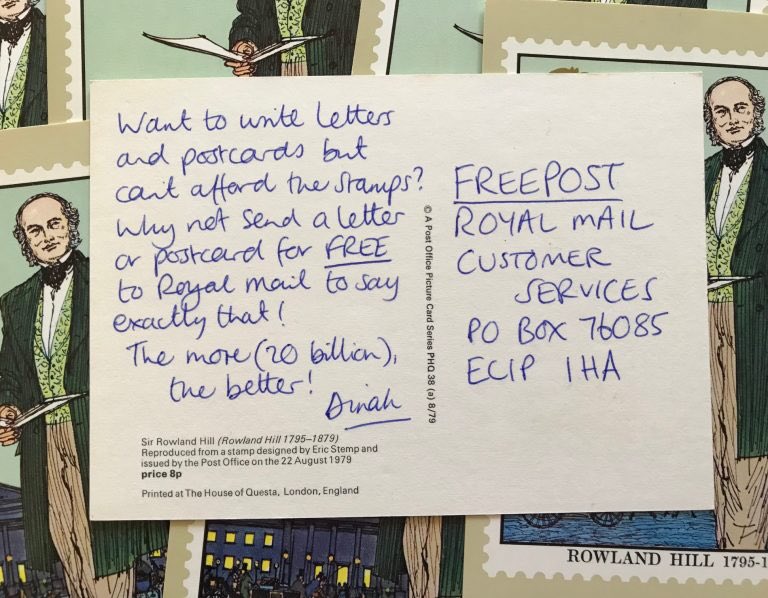 Want to write letters
and postcards but
can't afford the stamps?
Why not send a letter
or postcard for FREE
to Royal Mail to say
exactly that!
The more (20 billion),
the better!
Dinah
Sir Rowland Hill (Rowland Hill 1795–1879)
Reproduced from a stamp designed by Eric Stemp and
issued by the Post Office on the 22 August 1979
price 8p
Printed at The House of Questa, London, England
© A Post Office Picture Card Series PHQ 38 (a) 8/79
FREEPOST
ROYAL MAIL
CUSTOMER
SERVICES
PO BOX 76085
EC1P 1HA
ROWLAND HILL 1795-1